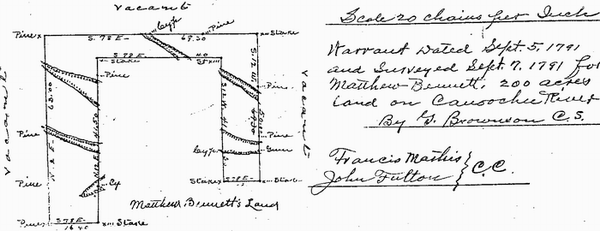 Vacant
Scale 20 chains per Inch
Pine
Pine
S. 78 E
69.50
Stake
S. 78 E
40
Stake
Warrant Dated Sept. 5, 1791
and Surveyed Sept. 7, 1791 for
Matthew Bennett, 200 acres
land on Canoochee River
By G. Brownson C.S.
Pine
63.00
Vacant
Vacant
Pine
Pine
Gum
N 12 E
Cy
Pine
Stake
Stake
Francis Mathis
John Fulton } C.C.
Matthew Bennett's Land
Pine
S 78 E
Stake